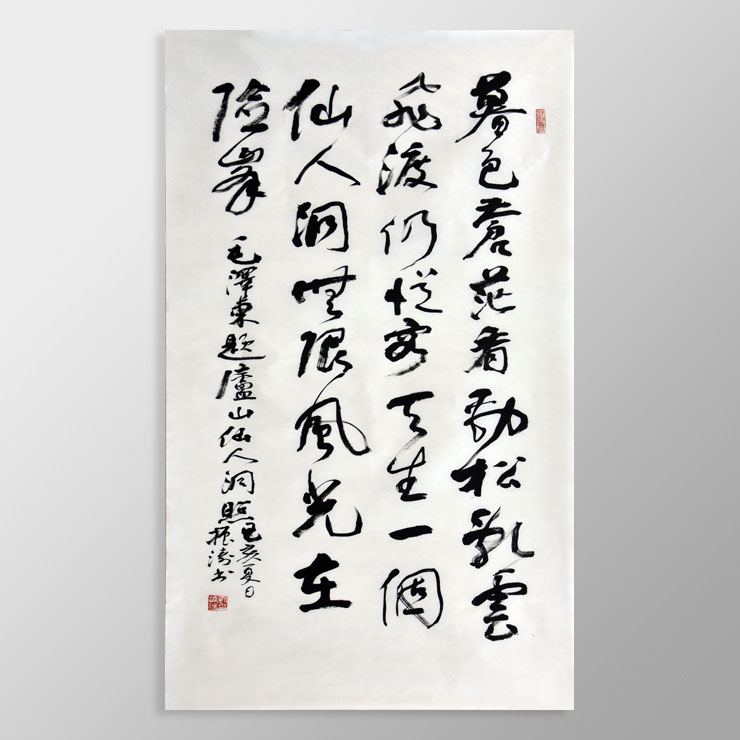 暮色蒼茫看勁松亂雲
飛渡仍從容天生一個
仙人洞無限風光在
險峯
毛澤東題廬山仙人洞照
己亥夏日
振濤书